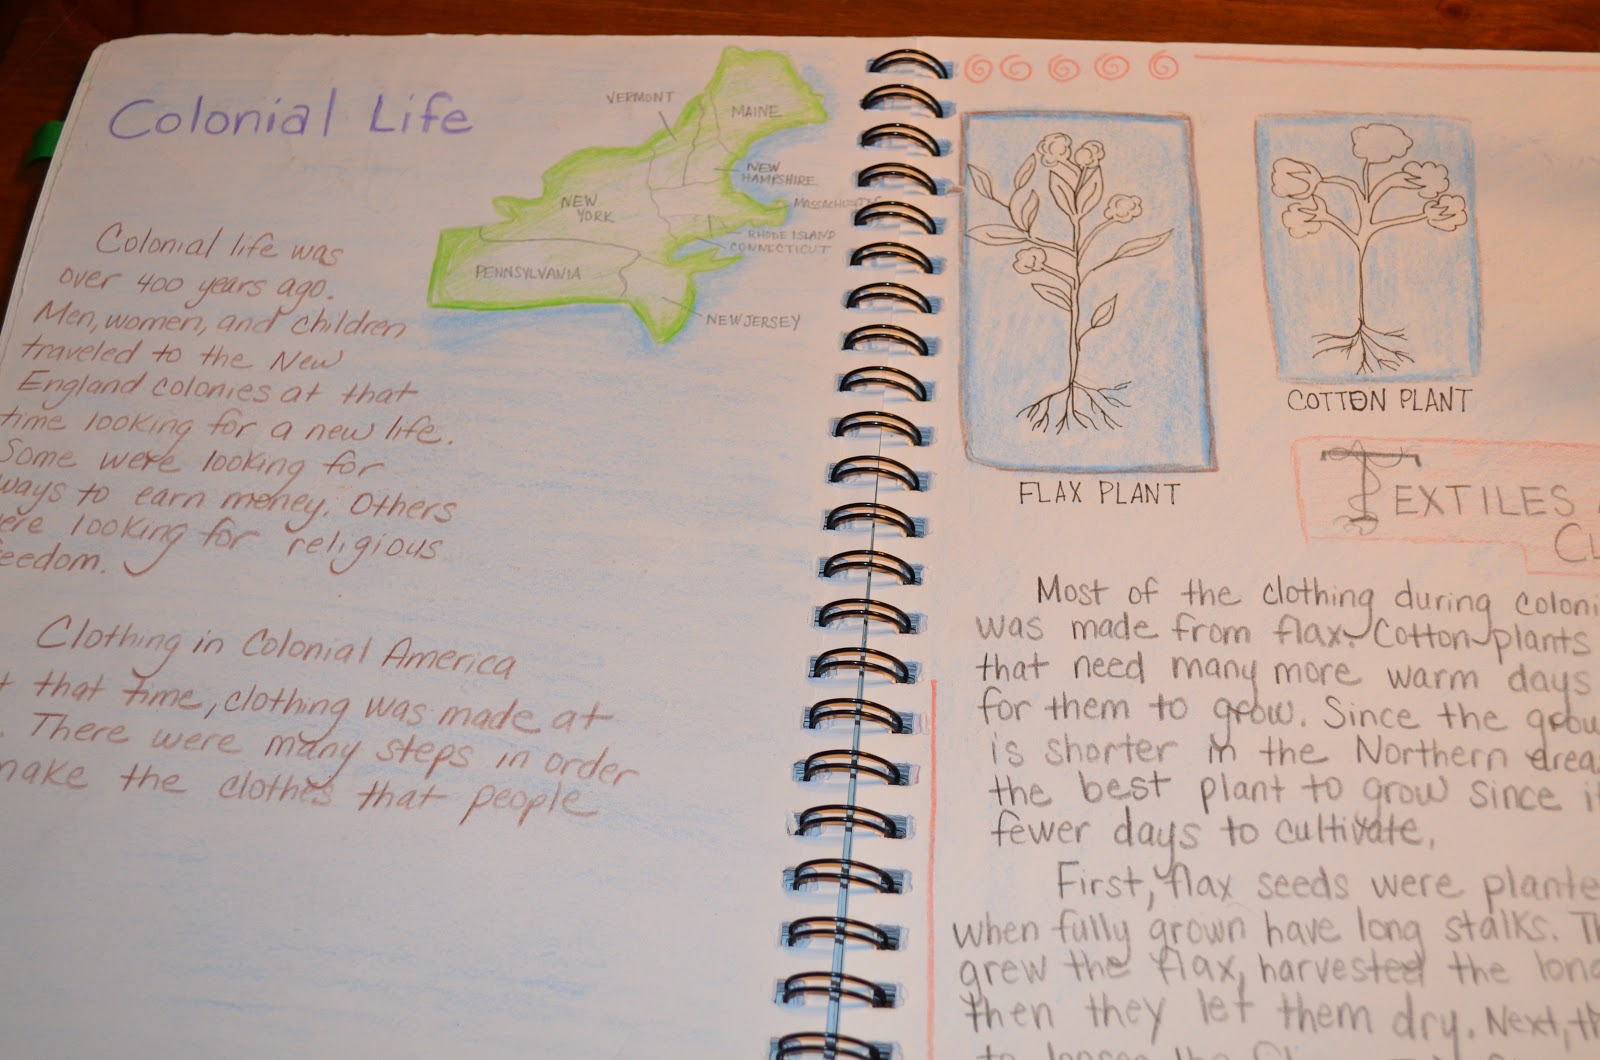 Colonial Life
VERMONT
MAINE
NEW
HAMPSHIRE
MASSACHUSETTS
NEW
YORK
RHODE ISLAND
CONNECTICUT
PENNSYLVANIA
NEW JERSEY
Colonial life was
over 400 years ago.
Men, women, and children
traveled to the New
England colonies at that
time looking for a new life.
Some were looking for
ways to earn money. Others
ere looking for religious
eedom.
Clothing in Colonial America
t that time, clothing was made at
. There were many steps in order
make the clothes that people
FLAX PLANT
COTTON PLANT
TEXTILES
CL
Most of the clothing during coloni
was made from flax. Cotton plants
that need many more warm days
for them to grow. Since the grow
is shorter in the Northern areas
the best plant to grow since it
fewer days to cultivate.
First, flax seeds were plante
when fully grown have long stalks. Th
grew the flax, harvested the long
then they let them dry. Next, th
to loosen the